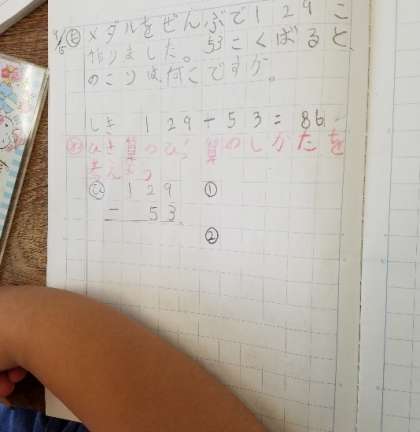 4/15 も メダルをぜんぶで129こ
作りました。53こくばると、
のこりは何こですか。
しき 129-53=86
め ひき算のひっ算のしかたを
考えよう
ひ 129 ①
- 53 ②